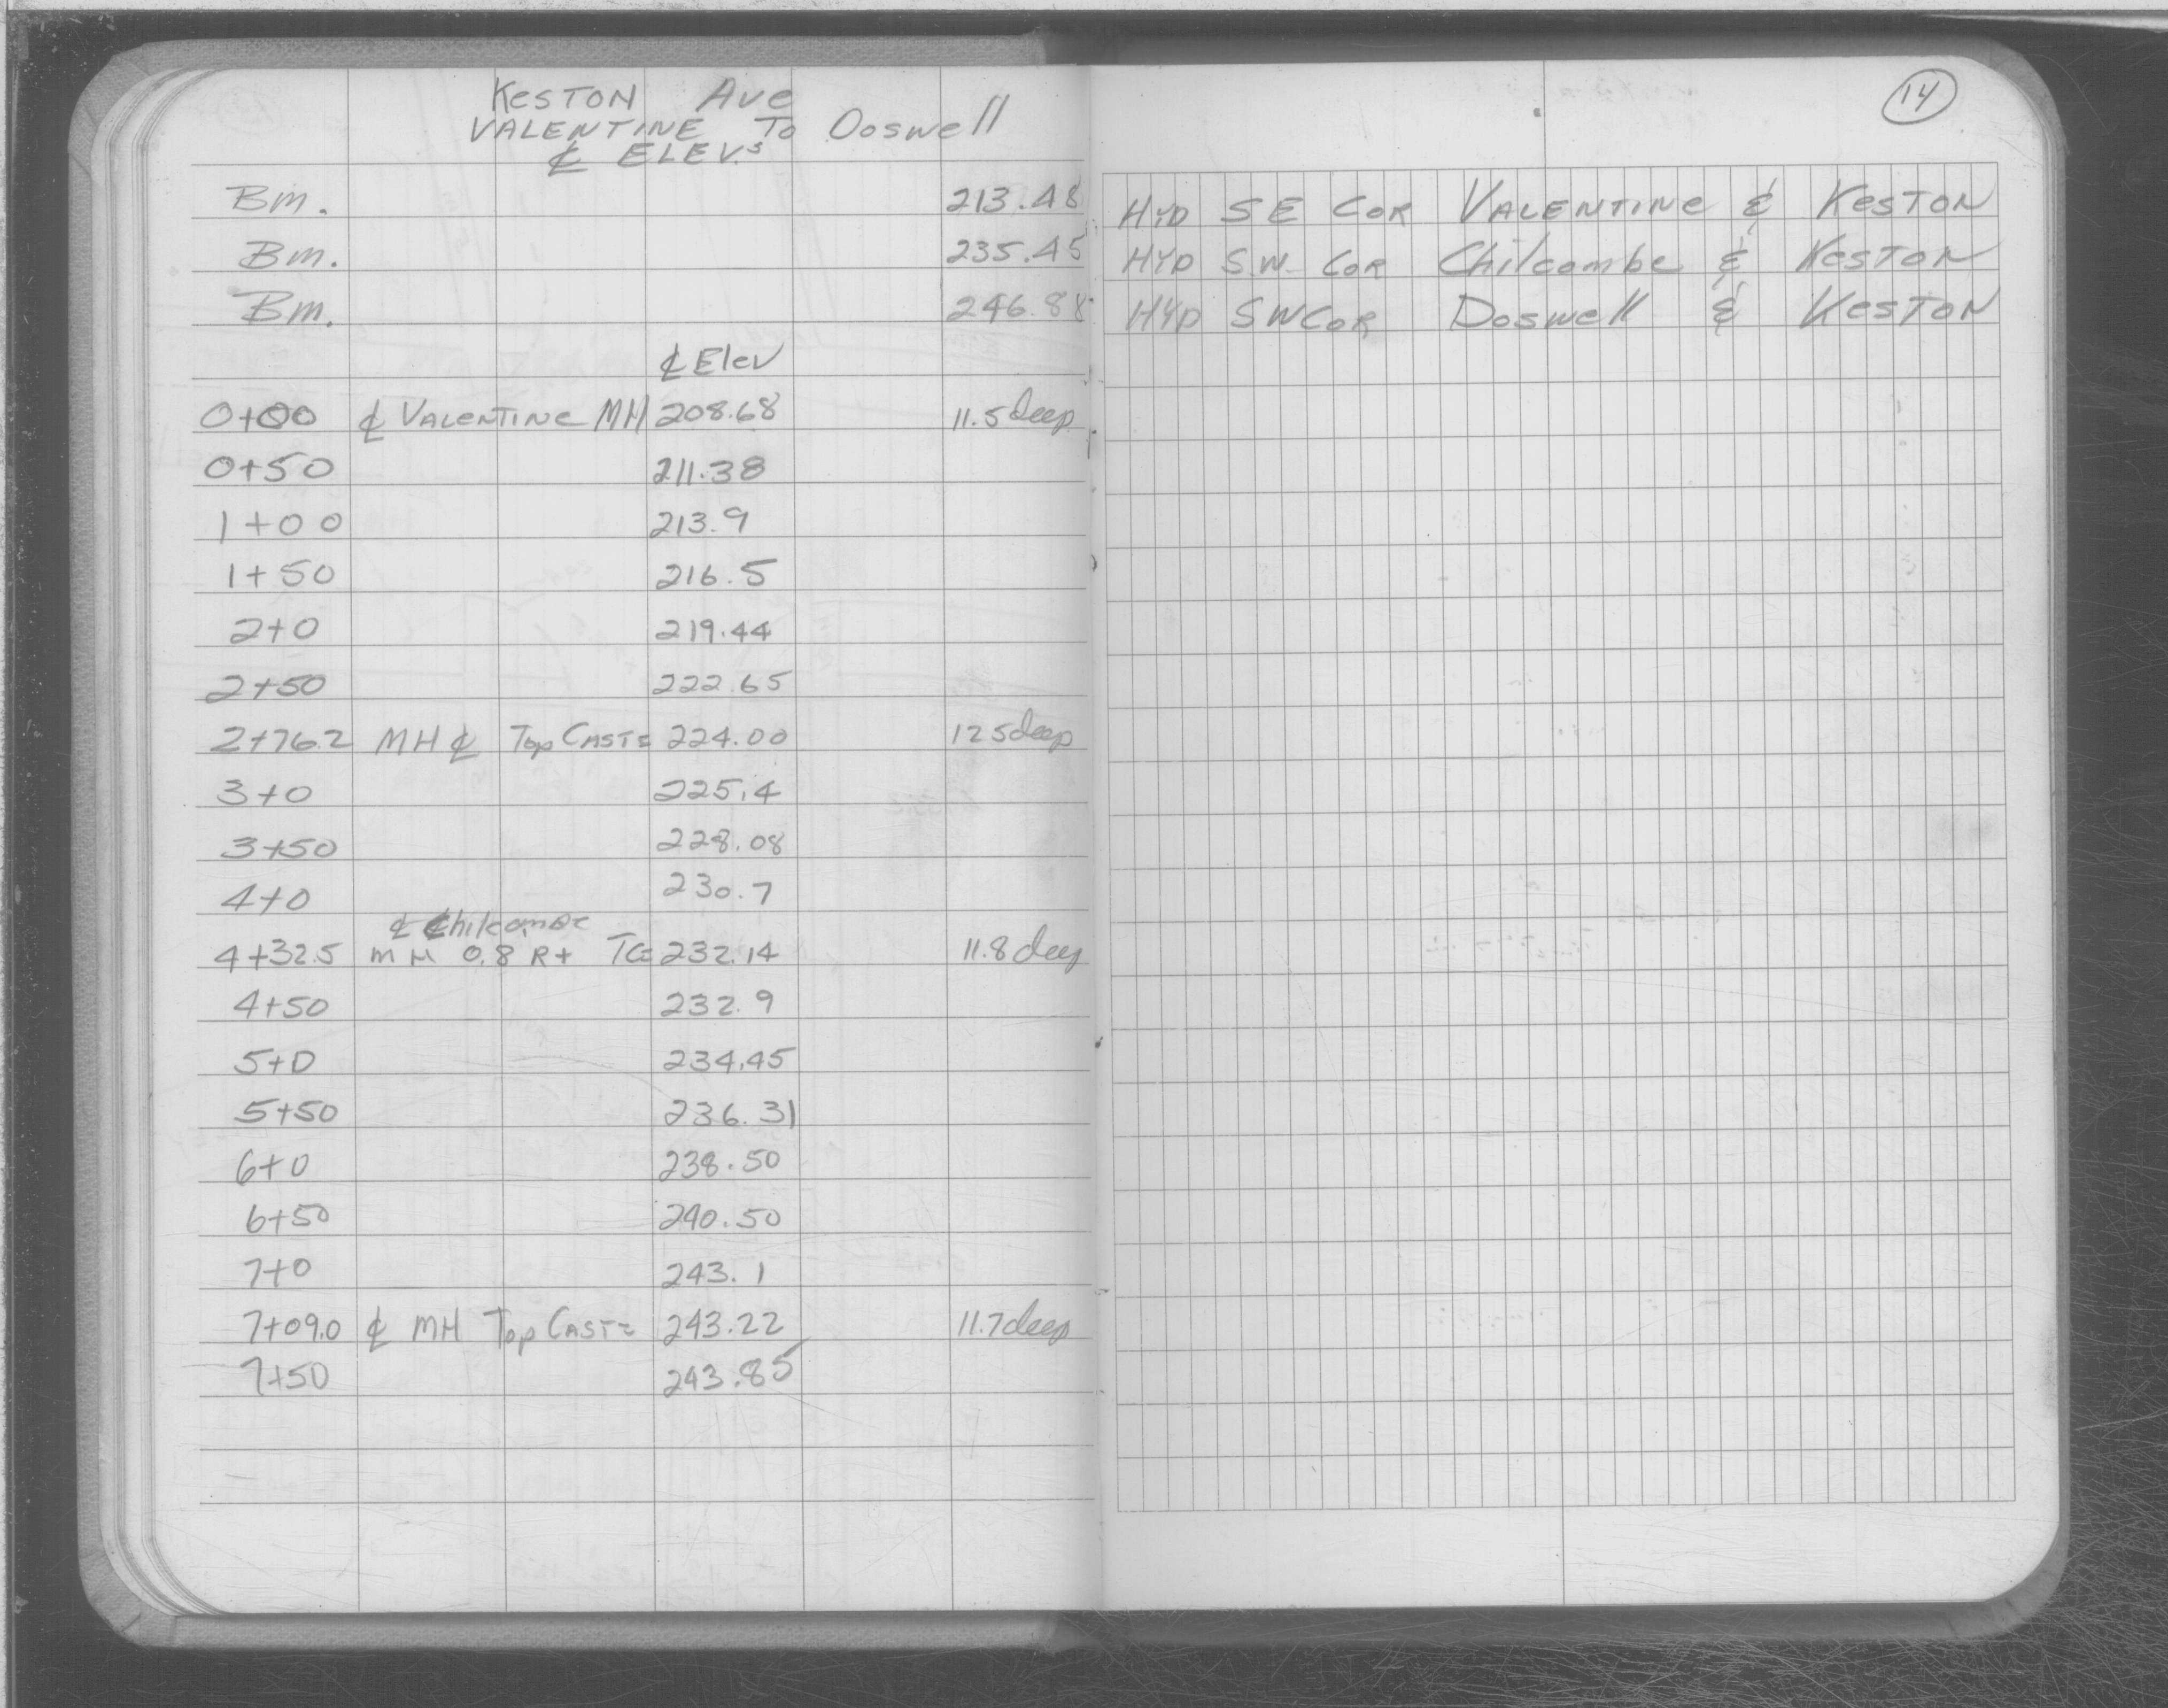 14
KESTON AVE
VALENTINE TO Doswell
℄ ELEVs
Bm. 213.48 HYD SE COR VALENTINE & KESTON
Bm. 235.45 HYD S.W. COR Chilcombe & KESTON
Bm. 246.88 HYD SW COR Doswell & KESTON
℄ Elev
0+00 ℄ VALENTINE MH 208.68 11.5 deep
0+50 211.38
1+00 213.9
1+50 216.5
2+0 219.44
2+50 222.65
2+76.2 MH ℄ Top CAST= 224.00 12 5 deep
3+0 225.4
3+50 228.08
4+0 230.7
℄ Chilcombe
4+32.5 MH 0.8 Rt TC= 232.14 11.8 deep
4+50 232.9
5+0 234.45
5+50 236.31
6+0 238.50
6+50 240.50
7+0 243.1
7+09.0 ℄ MH Top CAST= 243.22 11.7 deep
7+50 243.85